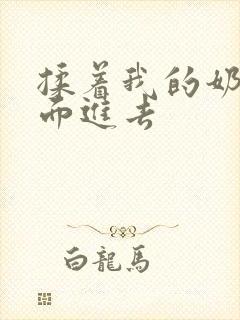 揉着我的奶
而進去
白龍馬